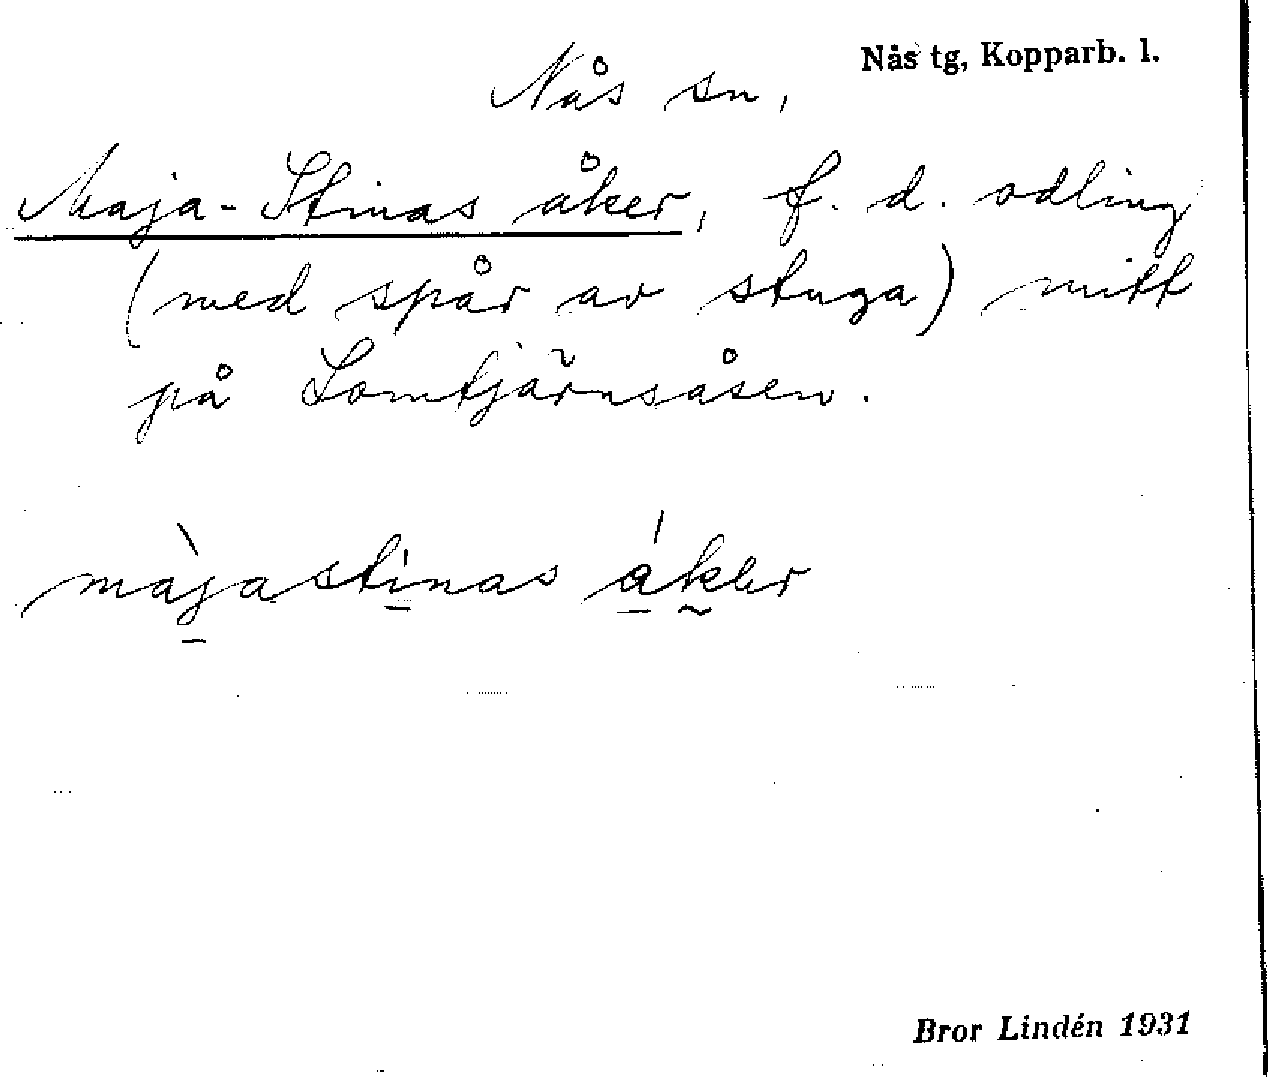 Nås tg, Kopparb. l.
Nås sn,
Maja-Stinas åker, f. d. odling
(med spår av stuga) mitt
på Lomtjärnsåsen.
màjastinas ákər
Bror Lindén 1931